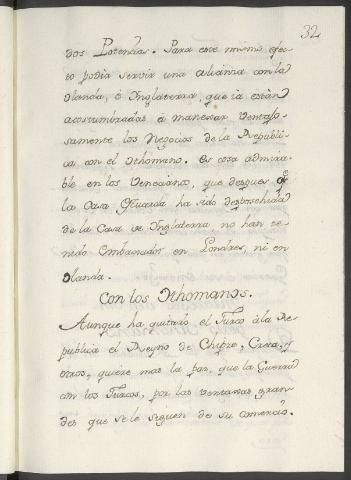 32
dos Potencias. Para este mismo efec-
to podia servir una alianza con la
Olanda, ó Inglaterra, que ia están
acostumbradas á manejar ventajo-
samente los Negocios de la Repúbli-
ca con el Othomano. Es cosa admira-
ble en los Venecianos, que despues q̃
la Casa Stuarda ha sido desposehida
de la Casa de Inglaterra no han te-
nido Embaxador en Londres, ni en
Olanda.
Con los Othomanos.
Aunque ha quitado el Turco à la Re-
publica el Reyno de Chipre, Creta, y
otros, quiere mas la paz, que la Guerra
con los Turcos, por las ventajas gran-
des que se le siguen de su comercio.